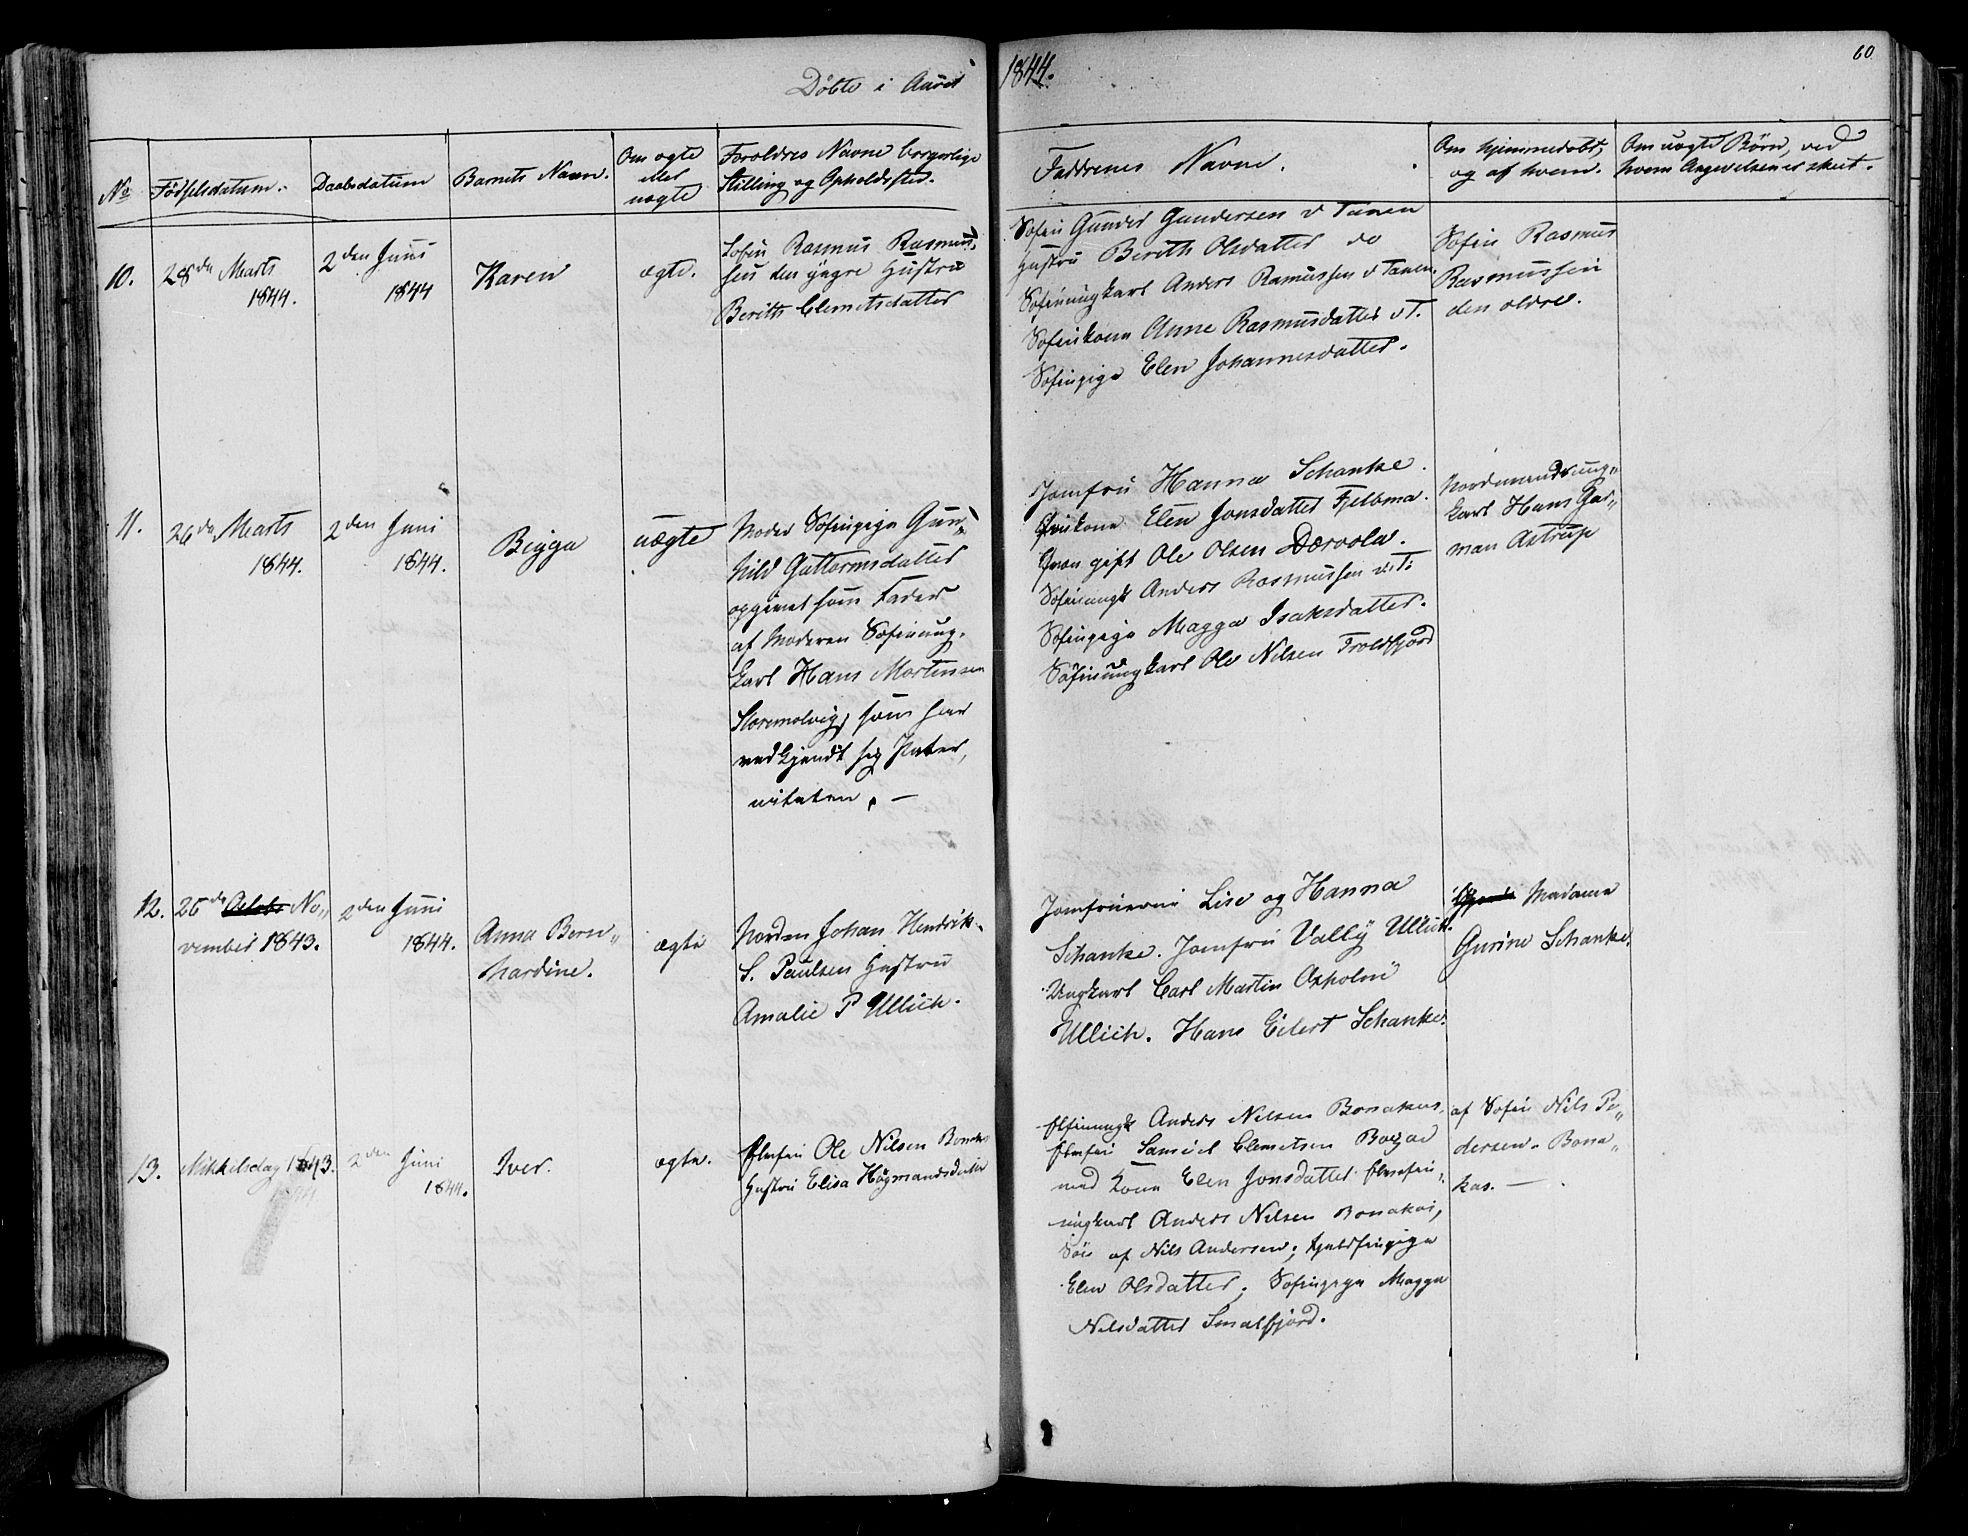 Döbte i Aaret 1844.
60
No
Födselsdatum.
Daabsdatum
Barnets Navn.
Om ægte
eller
uægte
Forældres Navne borgerlige
Stilling og Opholdssted.
Faddrenes Navne.
Om hjemmedøbt,
og af hvem.
Om uægte Börn, ved
hvem Angivelsen er skeet.
10.
28de Marts
1844.
2den Juni
1844
Karen
ægte.
Søfin Rasmus Rasmus-
sen den yngre Hustru
Berith Clemetsdatter
Søfin Gunder Gundersen v Tanen
Hustru Berith Olsdatter do
Søfinungkarl Anders Rasmussen v Tanen.
Søfinkone Anne Rasmusdatter v T.
Søfinpige Elen Johannesdatter.
Søfin Rasmus
Rasmussen
den ældre.
11.
26de Marts
1844.
2den Juni
1844.
Bigga
uægte
Moder Søfinpige Gun-
hild Guttormsdatter
opgivet som Fader
af Moderen Søfinung-
karl Hans Mortensen
Storemolvig, som har
vedkjendt sig Pater-
niteten. —
Jomfru Hanna Schanke.
Qvinkone Elen Jonsdatter Fjelbma.
Qvæn gift Ole Olsen Dærvola.
Søfinungk Anders Rasmussen v. T.
Søfinpige Magga Isaksdatter.
Søfinungkarl Ole Nilsen Troldfjord
Nordmandsung-
karl Hans Gar-
man Astrup
12.
25de Octobr No-
vember 1843.
2den Juni
1844.
Anna Bern-
hardine.
ægte
Nordm Johan Hendrik
S. Paulsen Hustru
Amalie P Ullich.
Jomfruerne Lise og Hanna
Schanke. Jomfru Vally Ullich.
Ungkarl Carl Martin Oxholm
Ullich. Hans Eilert Schanke.
Madame
Gurine Schanke.
13.
Mikkelsdag 1843.
2den Juni
1844.
Iver.
ægte.
Elvefin Ole Nilsen Bonakas
Hustru Elisa Högmandsdatter
Elfinungk Anders Nilsen Bonakas,
Elvefin Samuel Clemetsen
med Kone Elen Jonsdatter. Elvefin-
ungkarl Anders Nilsen Bonakas,
Sön af Nils Andersen; Fjeldfinpige
Elen Olsdatter. Søfinpige Magga
Nilsdatter Smalfjord.
af Søfin Nils Pe-
dersen Bona-
kas. —